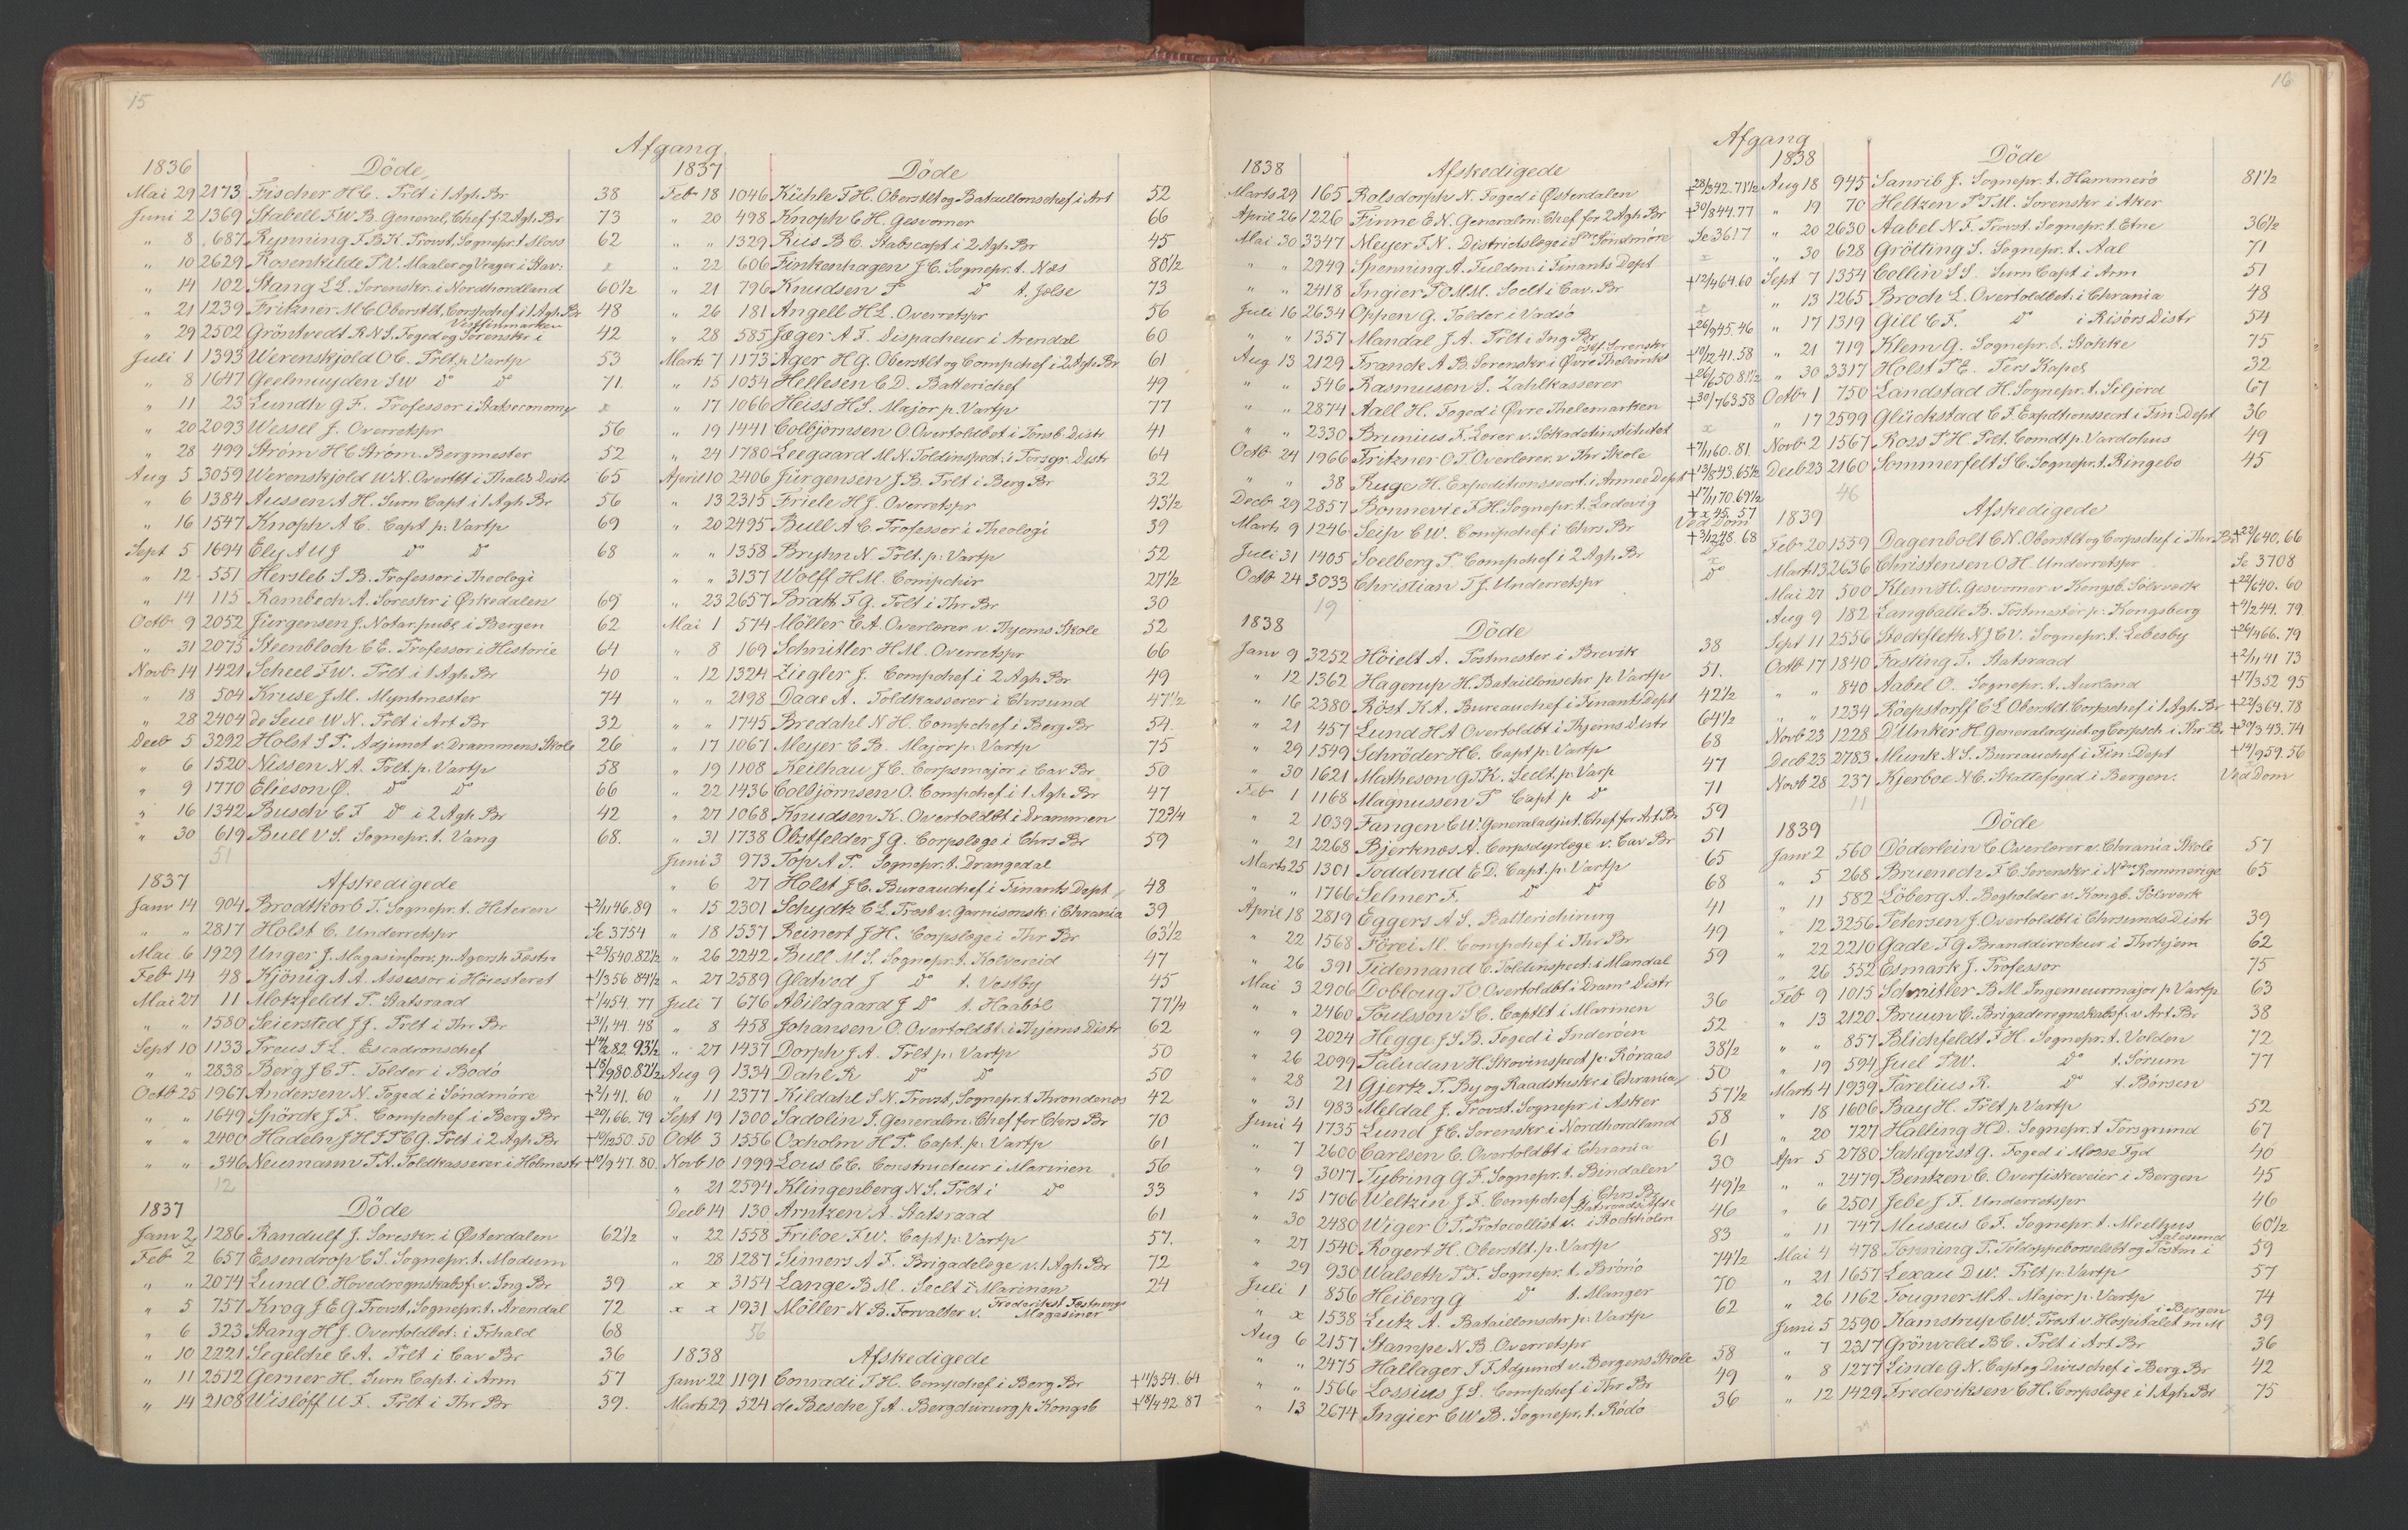 15
Afgang
1836 Döde
Mai 29 2173 Fischer H C. Prlt i 1 Agh. Br 38
Juni 2 1369 Stabell F W B. General, Chef f. 2 Agh. Br 73
" 8 687 Rynning F. B K. Provst, Sognepr. t. Moss 62
" 10 2629 Rosenkilde P V. Maaler og Vrager i Stav: x
" 14 102 Stang L L. Sorenskr. i Nordhordland 60 1/2
" 21 1239 Fritzner M C Oberstlt, Corpschef i 1 Agh. Br 48
" 29 2502 Gröntvedt R N S. Foged og Sorenskr i Vestfinmarken 42
Juli 1 1393 Werenskjold O C. Prlt p. Vartp 53
" 8 1647 Geelmuyden S W do do 71.
" 11 23 Lundh G F. Professor i Statseconomy x
" 20 2093 Wessel J. Overretspr 56
" 28 499 Ström H C Ström. Bergmester 52
Aug 5 3059 Werenskjold W N. Overtbt i Fhalds Distr 65
" 6 1384 Aussen A H. Surn Capt i 1 Agh Br 56
" 16 1547 Knoph A C. Capt p. Vartp 69
Sept 5 1694 Ely A U J do do 68
" 12 551 Hersleb S B. Professor i Theologi
" 14 115 Rambech A. Soreskr i Ørkedalen 69
Octb 9 2052 Jürgensen J. Notar. publ. i Bergen 62
" 31 2075 Steenbloch C E. Professor i Historie 64
Novb 14 1421 Scheel F W. Prlt i 1 Agh Br 40
" 18 504 Kruse J M. Myntmester 74
" 28 2404 de Seue W N. Prlt i Art Br 32
Decb 5 3292 Holst S P. Adjunct v. Drammens Skole 26
" 6 1520 Nissen N A. Prlt. p. Vartp 58
" 9 1770 Elieson Ø. do do 66
" 16 1342 Busch C F. do i 2 Agh Br 42
" 30 619 Bull V S. Sognepr. t. Vang 68.
51
1837 Afskedigede
Janv 14 904 Brodtkorb T. Sognepr. t. Hiteren +2/1146.89
" " 2817 Holst C. Underretspr Se 3754
Mai 6 1929 Unger J. Magasinforv. p. Agersh. Fæstn +25/540.82 1/2
Feb 14 48 Kjönig A A. Assessor i Höiesteret +1/356 84 1/2
Mai 27 11 Motzfeldt P. Statsraad +1/454. 77
" " 1580 Seiersted J J. Prlt i Thr Br +31/144 48
Sept 10 1133 Preus P L. Escadronschef 82 93 1/2
" " 2838 Berg J C P. Tolder i Bodö 80.82 1/2
Octb 25 1967 Andersen N. Foged i Söndmöre +2/141. 60
" " 1649 Spörck J F. Compchef i Berg Br +29/166. 79
" " 2400 Hadeln J H F P C G. Prlt i 2 Agh Br +19/1250.50
" " 346 Neumann P A. Toldkasserer i Holmestr +19/947. 80.
12
1837 Döde
Janv 2 1286 Randulf J. Soreskr. i Østerdalen 62 1/2
Feb 2 657 Essendrop C S. Sognepr. t. Modum
" " 2074 Lund O. Hovedregnskabsf. v. Ing Br 39
" 5 757 Krog J E G. Provst, Sognepr. t. Arendal 72
" 6 323 Stang H J. Overtoldbet. i Frhald 68
" 10 2221 Segelche C A. Prlt i Cav Br 36
" 11 2512 Gerner H. Surn Capt. i Arm 57
" 14 2108 Wislöff U F. Prlt i Thr Br 39.
1837 Döde
Feb 18 1046 Kühle F H. Oberstlt og Bataillonschef i Art 52
" 20 498 Knoph C H. Gesvorner 66
" " 1329 Riis B C. Stabscapt i 2 Agh. Br 45
" 22 606 Finkenhagen J C. Sognepr. t. Næs 80 1/2
" 21 796 Knudsen P do t. Jölse 73
" 26 181 Angell H L. Overretspr 56
" 28 585 Jæger A F. Dispacheur i Arendal 60
Marts 7 1173 Ager H G. Oberstlt og Compchef i 2 Agh Br 61
" 15 1054 Hellesen C D. Batterichef 49
" 17 1066 Heiss H S. Major p. Vartp 77
" 19 1441 Colbjörnsen O. Overtoldbet i Tonsb. Distr 41
" 24 1780 Leegaard M N. Toldinspect. i Porsgr. Distr 64
April 10 2406 Jürgensen J B. Prlt i Berg Br 32
" 13 2315 Friele H J. Overretspr 43 1/2
" 20 2495 Bull A C. Professor i Theologi 39
" " 1358 Bryhn N. Prlt. p. Vartp 52
" " 3137 Wolff H M. Compchir 27 1/2
" 23 2657 Bratt F G. Prlt i Thr Br 30
Mai 1 574 Möller C A. Overlærer v. Thjems Skole 52
" 8 169 Schnitler H M. Overretspr 66
" 12 1324 Ziegler J. Compchef i 2 Agh. Br 49
" " 2198 Daae A. Toldkasserer i Chrsund 47 1/2
" " 1745 Bredahl N H. Compchef i Berg Br 54.
" 17 1067 Meyer C B. Major p. Vartp 75
" 19 1108 Keilhau J C. Corpsmajor i Cav Br 50
" 22 1436 Colbjörnsen O. Compchef i 1 Agh Br 47
" 27 1068 Knudsen K. Overtoldbt i Drammen 72 3/4
" 31 1738 Obstfelder J G. Corpslæge i Chrs Br 59
Juni 3 973 Top A P. Sognepr. t. Drangedal
" 6 27 Holst J C. Bureauchef i Finants Dept 48
" 15 2301 Schydtz C L. Præst v. Garnisonsk. i Chrania 39
" 18 1537 Reinert J H. Corpslæge i Thr Br 63 1/2
" 26 2242 Bull M S. Sognepr. t. Kolvereid 47
" 27 2589 Glatved J do t. Vestby 45
Juli 7 676 Abildgaard J do t. Haaböl 77 1/4
" 8 458 Johansen O. Overtoldbt. i Thjems Distr 62
" 27 1437 Dorph J A. Prlt p. Vartp 50
Aug 9 1334 Dahl R do do 50
" 11 2377 Kildahl S N. Provst, Sognepr. t Throndenæs 42
Sept 19 1300 Sadolin J. Generalm. Chef for Chrs Br 70
Octb 3 1556 Oxholm H P. Capt. p. Vartp 61
Novb 10 1999 Lous C C. Constructeur i Marinen 56
" 21 2594 Klingenberg N S. Prlt i do 33
Decb 14 130 Arntzen A. Statsraad 61
" 22 1558 Friboe F W. Capt p. Vartp 57.
" 28 1287 Simers A F. Brigadelæge v. 1 Agh Br 72
x x 3154 Lange B M. Seclt i Marinen 24
x x 1931 Möller N B. Forvalter v. Frederikst. Fæstnings Magasiner
56
1838 Afskedigede
Janv 22 1191 Conradi P H. Compchef i Berg Br +11/354. 64
Marts 29 324 de Besche J A. Bergchirurg p. Kongsb +18/442.87
16
Afgang
1838 Afskedigede
Marts 29 165 Ralsdorph N. Foged i Østerdalen +28/342.71 1/2
April 26 1226 Finne E N. Generalm. Chef for 2 Agh Br +30/844.77
Mai 30 3347 Meyer F N. Districtslæge i Sdre Söndmöre Se 3617
" " 2949 Spenning A. Fuldm. i Finants Dept x
" " 2418 Ingier P O M M. Seclt i Cav. Br +12/464.60
Juli 16 2634 Oppen G. Tolder i Vadsö x
" " 1357 Mandal J A. Prlt i Ing Br +26/945.46
Aug 13 2129 Franck A B. Sorenskr i Øvre Thelemk +19/1241.58
" " 546 Rasmusen S. Zahlkasserer +26/650 81 1/2
" " 2874 Aall H. Foged i Øvre Thelemarken +30/763.58
" " 2330 Brunius F. Lærer v. Sökadetinstitutet x
Octb 24 1966 Fritzner O T. Overlærer. v. Thr Skole +7/1160. 81
" " 38 Ruge H. Expeditionssecrt. i Armee Dept +13/843.65 1/2
Decb 29 2857 Bonnevie F H. Sognepr. t. Ladevig +17/1170.69 1/2
Marts 9 1246 Seip C W. Compchef i Chrs Br Ved Dom + x 45. 57
Juli 31 1405 Soelberg P. Compchef i 2 Agh. Br do +3/1248. 68
Octb 24 3033 Christian P J. Underretspr do x
19
1838 Döde
Janv 9 3252 Höielt A. Postmester i Brevik 38
" 12 1362 Hagerup H. Bataillonschr p. Vartp 51.
" 16 2380 Röst K A. Bureauchef i Finants Dept 42 1/2
" 21 457 Lund H A. Overtoldbt i Thjems Distr 64 1/2
" 29 1549 Schröder H C. Capt p. Vartp 68
" 30 1621 Matheson G F K. Seclt p. Vartp 47
Feb 1 1168 Magnussen P Capt p do 71
" 2 1039 Fangen C W. Generaladjut. Chef for Art Br 59
" 21 2268 Bjerknæs A. Corpsdyrlæge v. Cav Br 51
Marts 25 1301 Sodderud E D. Capt. p. Vartp 65
" " 1766 Selmer F. do do 68
April 18 2819 Eggers A S. Batterichirurg 41
" 22 1568 Förei M. Compchef i Thr Br 49
" 26 391 Tidemand C. Toldinspect. i Mandal 59
Mai 3 2906 Dobloug P O Overtoldbt i Dram Distr
" " 2460 Poulsson S C. Captlt i Marinen 36
" 9 2024 Hegge J S B. Foged i Inderöen 52
" 26 2099 Paludan H. Skovinspect p. Röraas 38 1/2
" 28 21 Gjertz P. By og Raadstuskr i Chrania 50
" 31 983 Meldal J. Provst. Sognepr i Asker 57 1/2
Juni 4 1735 Lund J C. Sorenskr i Nordhordland 58
" 7 2600 Carlsen C. Overtoldbt i Chrania 61
" 9 3017 Tybring G F. Sognepr. t. Bindalen 30
" 15 1706 Weltzin J F. Compchef i Chrs Br 49 1/2
" 30 2480 Wiger O P. Protocollist v. Statsraadsafd. i Stockholm 46
" 27 1540 Rogert H. Oberstlt. p. Vartp 83
" 29 930 Walseth P F. Sognepr. t. Brönö 74 1/2
Juli 1 856 Heiberg G do t. Manger 70
" x 1538 Lutz A. Bataillonschr p. Vartp 62
Aug 6 2157 Stampe N B. Overretspr
" " 2475 Hallager J F. Adjunct v. Bergens Skole 58
" " 1566 Lossius J S. Compchef i Thr Br 49
" 13 2674 Ingier C W B. Sognepr, t. Rödö 36
1838 Döde
Aug 18 945 Sanrib J. Sognepr. t. Hammerö 81 1/2
" 19 70 Heltzen P T M. Sorenskr i Aker
" 20 2630 Aabel N F. Provst. Sognepr. t. Etne 36 1/2
" 30 628 Grötting S. Sognepr. t. Aal 71
Sept 7 1354 Collin S S. Surn Capt i Arm 51
" 13 1265 Broch L. Overtoldbet. i Chrania 48
" 17 1319 Gill C F. do i Risörs Distr 54
" 21 719 Klem G. Sognepr. t. Stokke 75
" 30 3317 Holst P E. Pers Kapel 32
Octb 1 750 Landstad H. Sognepr. t. Seljord 67
" 17 2599 Glückstad C F. Expditionssecrt i Fin. Dept 36
Novb 2 1567 Ross P H. Prlt. Comdt p. Vardöhus 49
Decb 23 2160 Sommerfelt S C. Sognepr. t. Ringebo 45
46
1839 Afskedigede
Feb 20 1559 Dagenbolt C N. Oberstlt og Corpschef i Thr Br +22/640.66
Mart 13 2636 Christensen O H. Underretspr Se 3708
Mai 27 500 Klem H. Gesvorner v. Kongsb. Sölvverk +22/640. 60
Aug 9 182 Langballe B. Postmester p. Kongsberg +4/244. 79
Sept 11 2556 Stockfleth N J C V. Sognepr. t. Lebesby +26/466. 79
Octb 17 1840 Fasting T. Statsraad +2/1141 73
" " 840 Aabel O. Sognepr. t. Aurland +17/352 95
" " 1234 Röepstorff C L. Oberstlt. Corpschef i 1 Agh. Br +22/364.78
Novb 23 1228 D'Unker H. Generaladjut og Corpsch. i Thr Br. +30/343.74
Decb 23 2783 Munk N S. Bureauchef i Fin. Dept +14/959.56
Novb 28 237 Kjerboe N C. Skattefoged i Bergen. Ved Dom
11
1839 Döde
Janv 2 560 Döderlein C. Overlærer v. Chrania Skole 57
" 5 268 Bruenech F C. Sorenskr i Ndre Rommerige 65
" 11 582 Löberg A. Bogholder v. Kongb. Sölvverk
" 12 3256 Petersen J. Overtoldbt i Chrsunds Distr 39
" 22 2210 Gade F G. Branddirecteur i Thrhjem 62
" 26 552 Esmark J. Professor 75
Feb 9 1015 Schnitler B M. Ingenieurmajor p. Vartp 63
" 13 2120 Bruun C. Brigaderegnskabsf. v. Art Br 38
" " 857 Blichfeldt F H. Sognepr. t. Volden 72
" 19 594 Juel P W. do t. Sörum 77
Marts 4 1939 Parelius R. do t. Börsen
" 18 1606 Bay H. Prlt p. Vartp 52
" 20 727 Halling H D. Sognepr. t Porsgrund 67
Apr 5 2780 Sahlqvist G. Foged i Mosse Fgd 40
" " 2479 Bentzen C. Overfiskeveier i Bergen 45
" 6 2501 Jebe J F. Underretspr 46
" 11 747 Musæus C F. Sognepr. t. Meelhus 60 1/2
Mai 4 478 Tönning P. Toldoppebörselsbt og Postm i Aalesund 59
" 21 1657 Lexau D W. Prlt p. Vartp 57
" 26 1162 Fougner M A. Major p. Vartp 74
Juni 5 2590 Kamstrup C W. Præst v. Hospitalet m M i Bergen 39
" 7 2317 Grönvold B C. Prlt i Art. Br 36
" 8 1277 Linde G N. Capt og Divischef i Berg Br 42
" 12 1429 Frederiksen C H. Corpslæge i 1 Agh Br 75